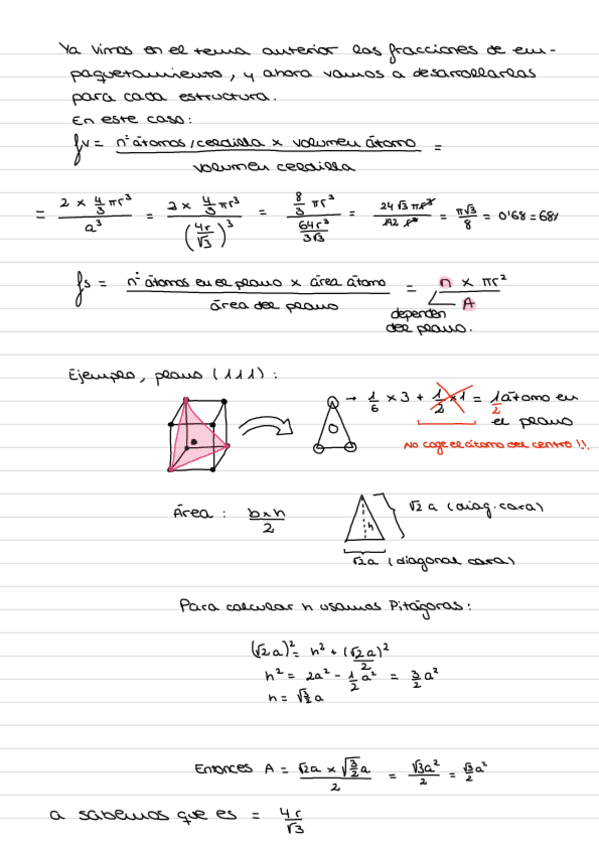 Ya vimos en el tema anterior las fracciones de em-
paquetamiento, y ahora vamos a desarrollarlas
para cada estructura.
En este caso:
fv = nº átomos/celdilla x volumen átomo / volumen celdilla =
= 2 x 4/3 πr³ / a³ = 2 x 4/3 πr³ / (4r/√3)³ = 8/3 πr³ / 64r³/3√3 = 24√3 πr³ / 192 r³ = π√3/8 = 0'68 = 68%
fs = nº átomos en el plano x área átomo / área del plano = n x πr² / A
dependen
del plano.
Ejemplo, plano (111):
→ 1/6 x 3 + 1/2 x 1 = 1/2 átomo en
el plano
NO coge el átomo del centro !!
Área: b x h / 2
h
√2 a (diag. cara)
√2a (diagonal cara)
Para calcular h usamos Pitágoras:
(√2a)² = h² + (√2a/2)²
h² = 2a² - 1/2 a² = 3/2 a²
h = √3/2 a
Entonces A = √2a x √3/2 a / 2 = √3a²/2 = √3/2 a²
a sabemos que es = 4r/√3